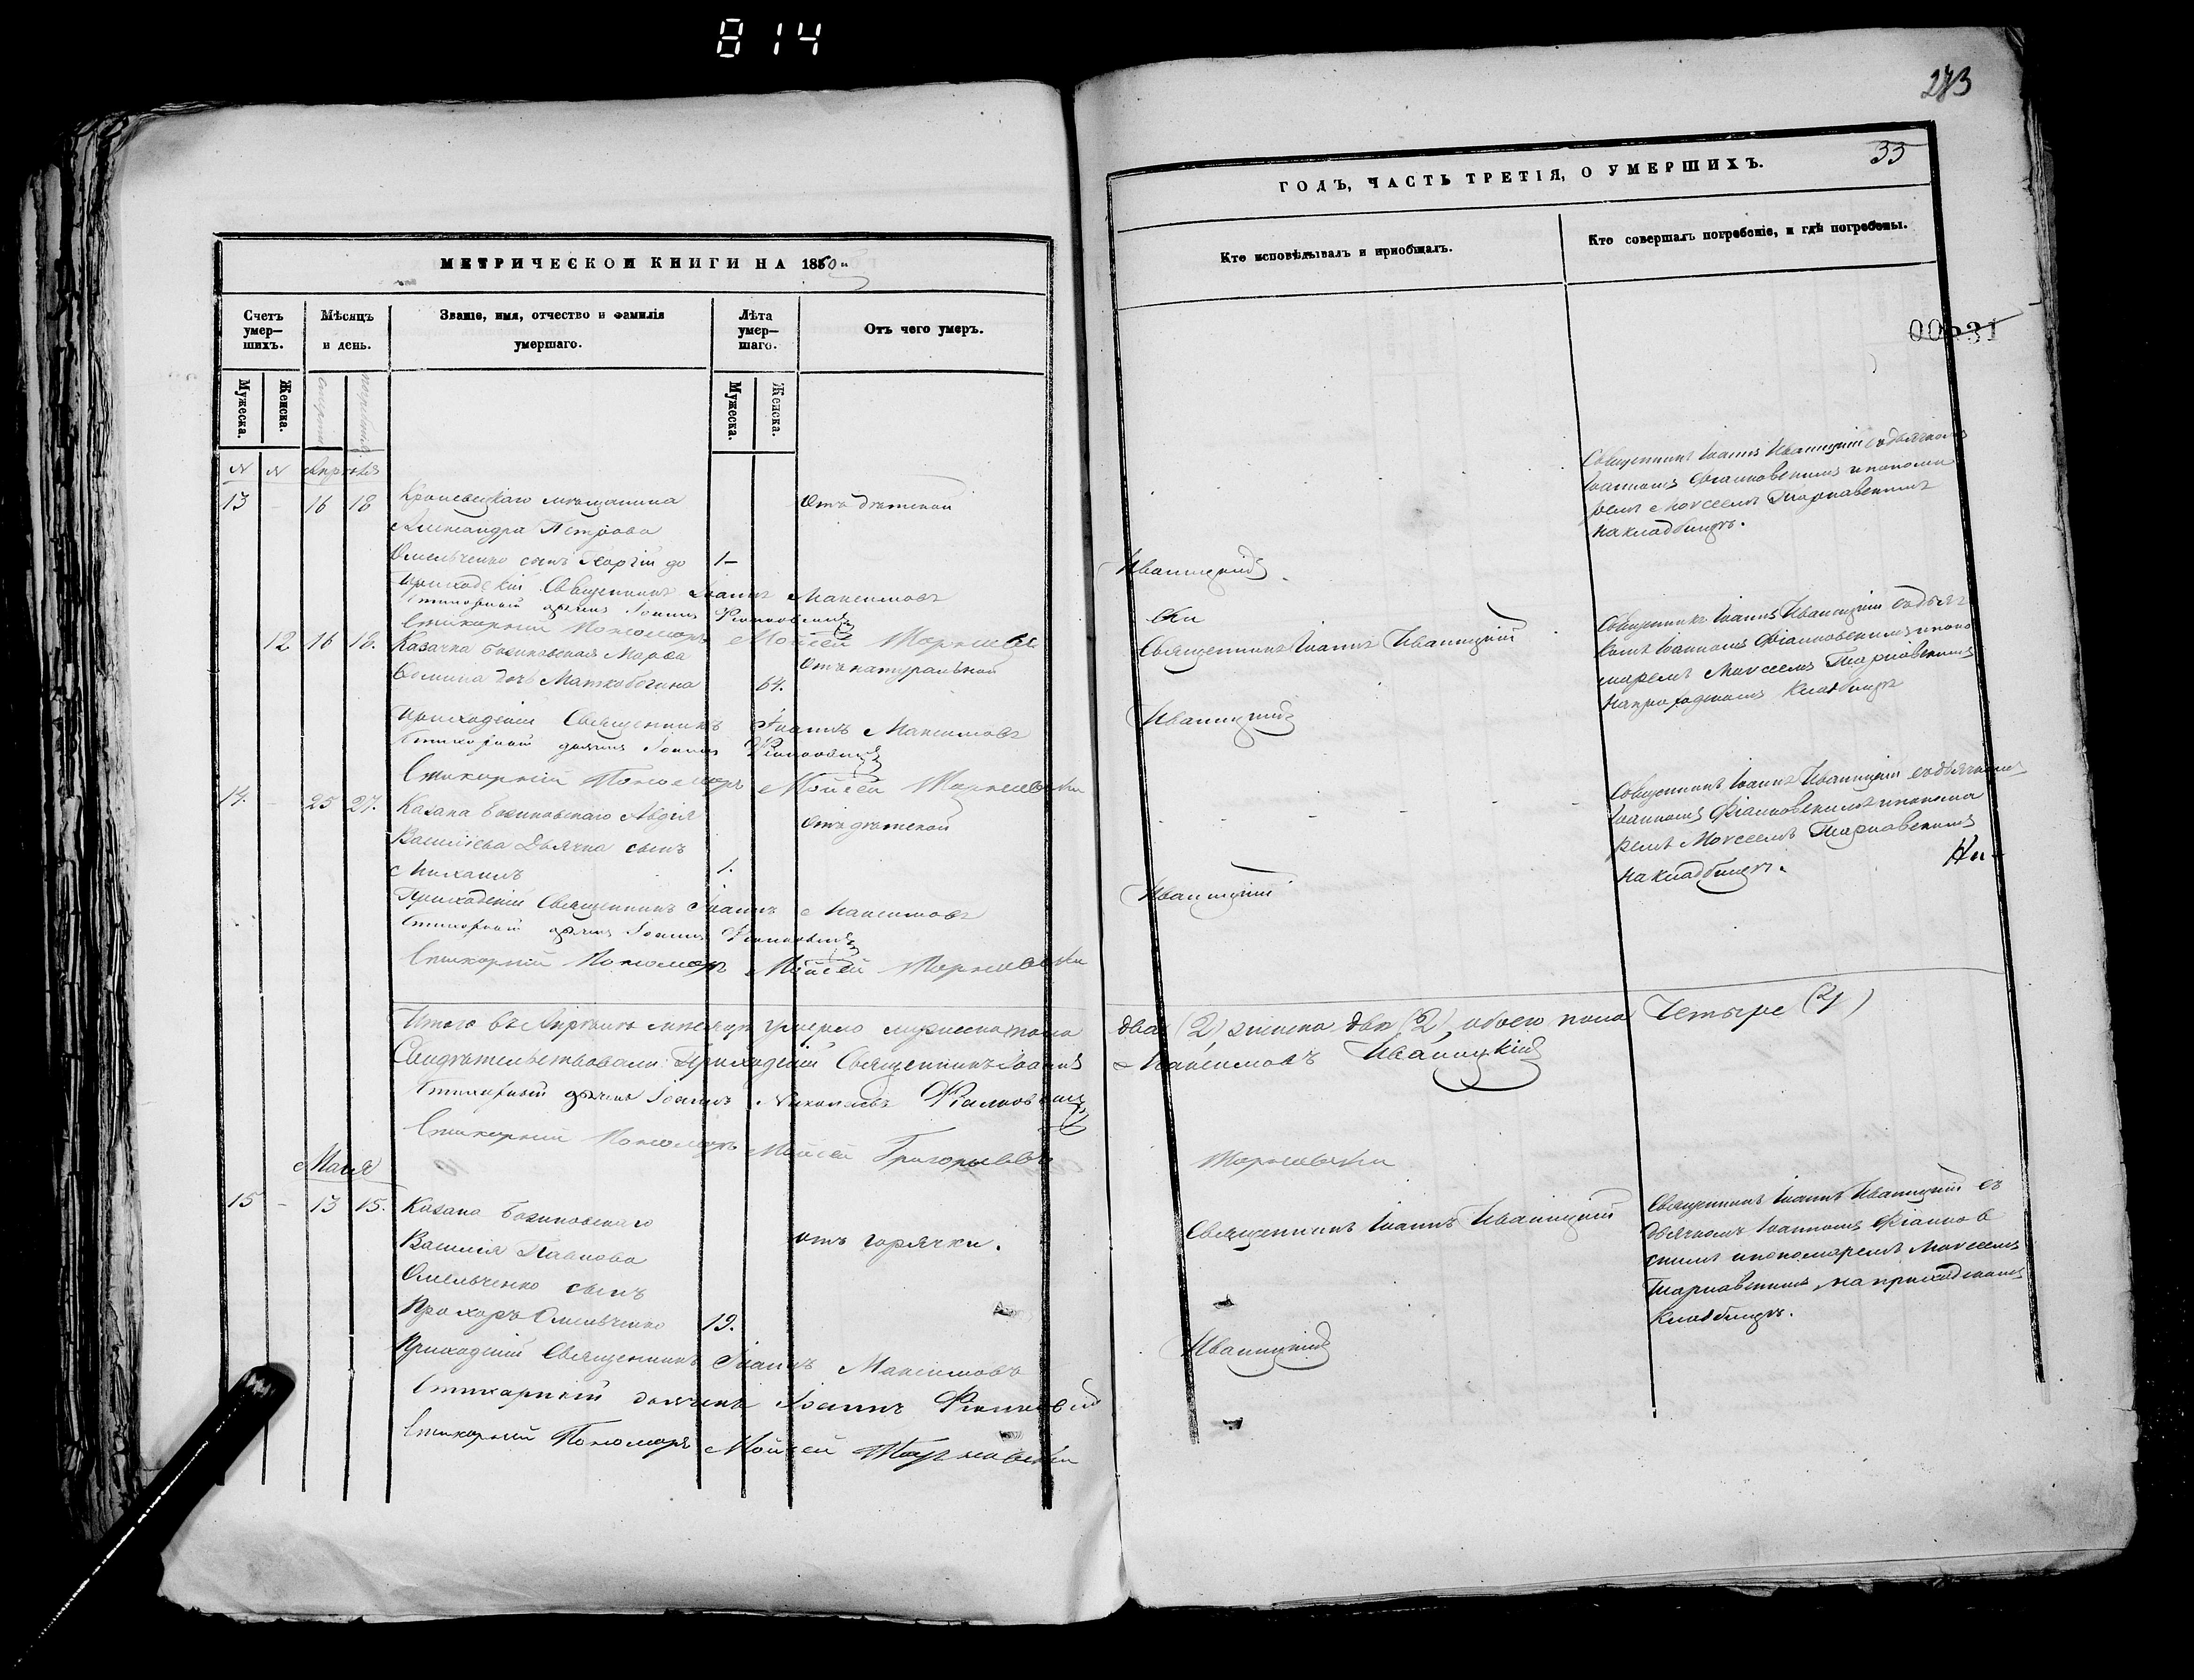 814
273
МЕТРИЧЕСКОЙ КНИГИ НА 1860
Счетъ умер-
шихъ.
Мѣсяцъ
и день.
Званіе, имя, отчество и фамилія
умершаго.
Лѣта
умер-
шаго.
Отъ чего умеръ.
Мужеска.
Женска.
смерти
погребенія
Мужеска.
Женска.
№ № Апрѣля
13 - 16 18 Кролевецкаго мѣщанина
Александра Петрова
Омельченко сынъ Георгій до 1-
Отъ дѣтской
Приходскій Священникъ Іоаннъ Максимовъ
Стихарный дьячекъ Іоаннъ Фіалковскій
Стихарній Пономарь Мойсей Тарнавскій
12 16 18. Казачка Марѳа
Ѳомина дочь 64.
Отъ натуральной
Приходскій Священникъ Іоаннъ Максимовъ
Стихарный дьячекъ Іоаннъ Фіалковскій
Стихарній Пономарь Мойсей Тарнавскій
14. - 25 27. Казака Авдія
Васильева Дьячка сынъ
Михаилъ 1.
Отъ дѣтской
Приходскій Священникъ Іоаннъ Максимовъ
Стихарный дьячекъ Іоаннъ Фіалковскій
Стихарній Пономарь Мойсей Тарнавскій
Итого въ Апрѣлѣ мѣсяцѣ умерло мужеска пола
Свидѣтельствовали: Приходскій Священникъ Іоаннъ
Стихарный дьячекъ Іоаннъ Фіалковскій
Стихарній Пономарь Мойсей Григорьевъ
Маія
15 - 13 15. Казака
Василія Павлова
Омельченко сынъ
Прохоръ Омельченко 19.
отъ горячки.
Приходскій Священникъ Іоаннъ Максимовъ
Стихарный дьячекъ Іоаннъ Фіалковскій
Стихарній Пономарь Мойсей Тарнавскій
ГОДЪ, ЧАСТЬ ТРЕТІЯ, О УМЕРШИХЪ.
33
Кто исповѣдывалъ и пріобщалъ.
Кто совершалъ погребеніе, и гдѣ погребены.
Священникъ Іоаннъ Иваницкій съ дьячкомъ
Іоанномъ Фіалковскимъ и понома
ремъ Моѵсеемъ Тарнавскимъ
на кладбищѣ.
Иваницкій
Священникъ Іоаннъ Иваницкій
Священникъ Іоаннъ Иваницкій съ дьяч
комъ Іоанномъ Фіалковскимъ и поно
маремъ Моѵсеемъ Тарнавскимъ
на приходскомъ кладбищѣ
Иваницкій
Священникъ Іоаннъ Иваницкій съ дьячкомъ
Іоанномъ Фіалковскимъ и понома
ремъ Моѵсеемъ Тарнавскимъ
на кладбищѣ.
Иваницкій
два (2) женска двѣ (2), обоего пола Четыре (4)
Максимовъ Иваницкій
Тарнавскій
Священникъ Іоаннъ Иваницкій
Священникъ Іоаннъ Иваницкій съ
дьячкомъ Іоанномъ Фіалков
скимъ и пономаремъ Моѵсеемъ
Тарнавскимъ, на приходскомъ
кладбищѣ.
Иваницкій